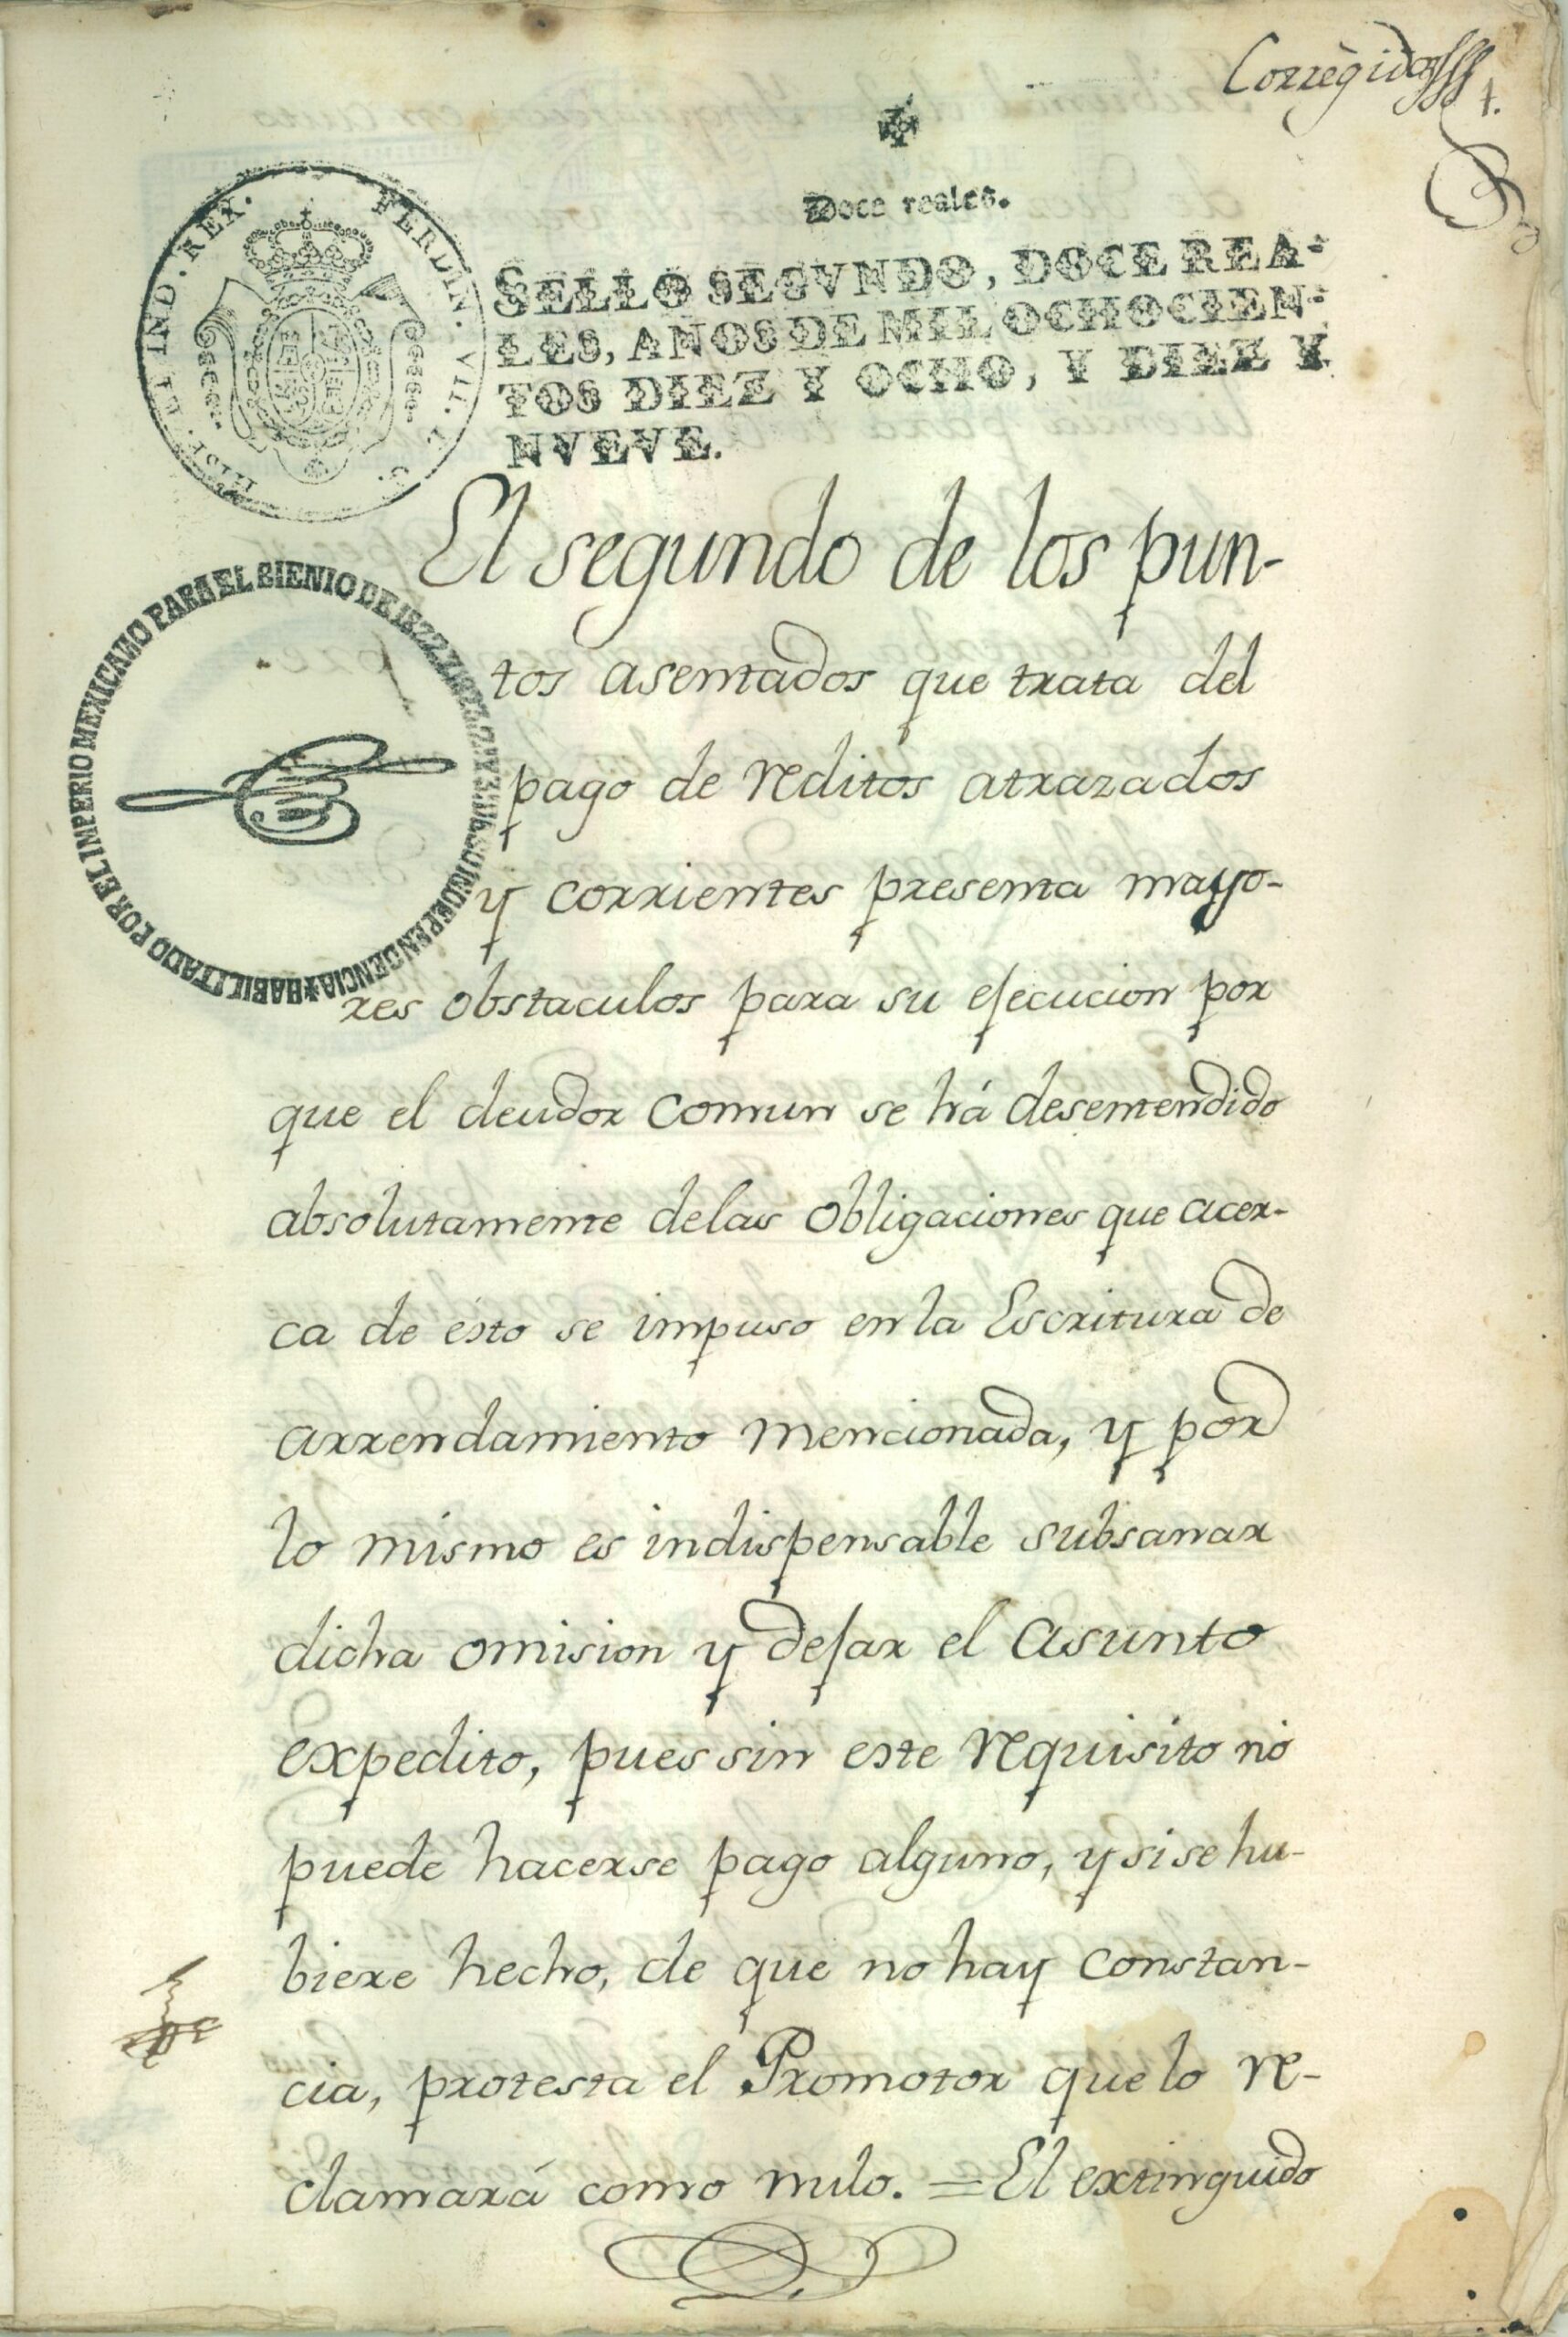 Corregidor
1.
Doce reales.
SELLO SEGVNDO, DOCE REA-
LES, AÑOS DE MIL OCHOCIEN-
TOS DIEZ Y OCHO, Y DIEZ Y
NVEVE.
FERDIN. VII. D. G. HISP. ET IND. REX.
HABILITADO POR EL IMPERIO MEXICANO PARA EL BIENIO DE 1822 Y 1823. 2º Y 3º DE SU INDEPENDENCIA
El segundo de los pun-
tos asentados que trata del
pago de reditos atrazados
y corrientes presenta mayo-
res obstaculos para su ejecucion por
que el deudor comun se há desentendido
absolutamente delas obligaciones que acer-
ca de ésto se impuso en la Escritura de
arrendamiento mencionada, y por
lo mismo es indispensable subsanar
dicha omision y dejar el asunto
expedito, pues sin este requisito no
puede hacerse pago alguno, y si se hu-
biere hecho, de que no hay constan-
cia, protesta el Promotor que lo re-
clamará como nulo. = El extinguido